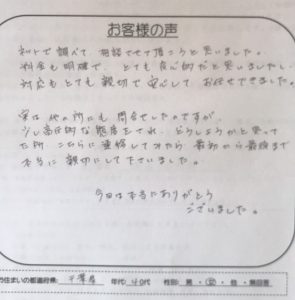 お客様の声
ネットで調べて、相談させて頂こうと思いました。
料金も明確で、とても良心的だと思いましたし、
対応もとても親切で安心してお任せできました。
実は他の所にも問合せしたのですが、
少し高圧的な態度をされ、どうしようかと思って
た所、こちらに連絡してみたら、最初から最後まで
本当に親切にして下さいました。
今回は本当にありがとう
ございました。
お住まいの都道府県: 千葉県 年代: 40代 性別: 男・女・他・無回答